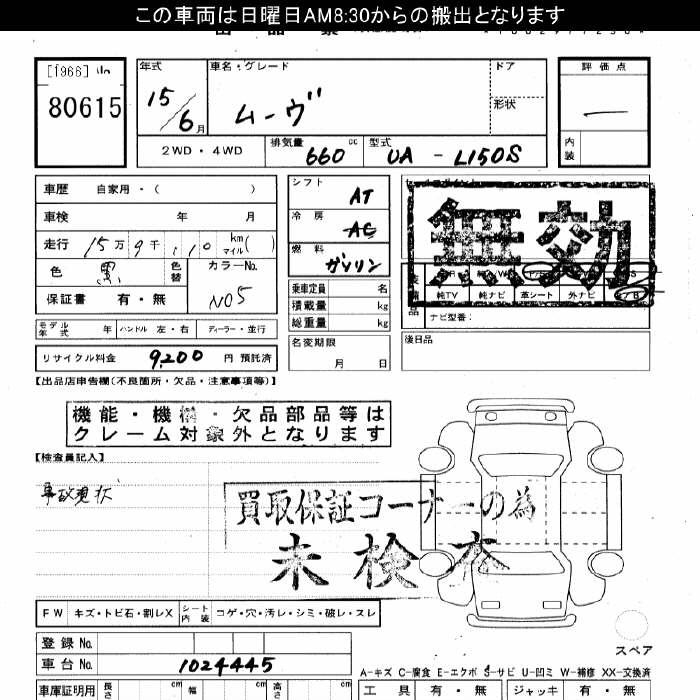 この車両は日曜日AM8:30からの搬出となります
[1966]
80615
年式
15/6月
車名・グレード
ムーヴ
ドア
形状
評価点
内装
2WD・4WD
排気量 660 cc
型式 UA - L150S
車歴 自家用・( )
車検 年 月
走行 15万9千110 km マイル( )
色 黒 色替
カラーNo. N05
保証書 有・無
シフト AT
冷房 AC
燃料 ガソリン
乗車定員 名
積載量 kg
総重量 kg
無効
純TV 純ナビ 革シート 外ナビ
ナビ型番:
モデル年式 年 ハンドル 左・右 ディーラー・並行
リサイクル料金 9,200 円 預託済
名変期限
月 日
後日品
【出品店申告欄(不良箇所・欠品・注意事項等)】
機能・機構・欠品部品等は
クレーム対象外となります
【検査員記入】
事故現状
買取保証コーナーの為
未検査
FW キズ・トビ石・割レX シート内装 コゲ・穴・汚レ・シミ・破レ・スレ
登録No.
車台No. 1024445
スペア
A-キズ C-腐食 E-エクボ S-サビ U-凹ミ W-補修 XX-交換済
車庫証明用 長さ cm 幅 cm 高さ cm
工具 有・無 ジャッキ 有・無